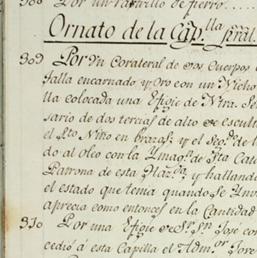 308 Por un Farolillo de fierro
Ornato de la Cap.lla pral.
309 Por un Corateral de dos Cuerpos
talla encarnado y Oro con un Nicho
lla colocada una Efigie de Ntra. Se
sario de dos tercias de alto de escult
el Sto Niño en brazos: y el Seg.do de
do al Oleo con la Imag.n de Sta Cat
Patrona de esta Haz.da y hallando
el estado que tenia quando se Ynv
aprecia como entonces en la Cantidad
310 Por una Efigie de S.r S.n José con
cedió á esta Capilla el Adm.or Jose